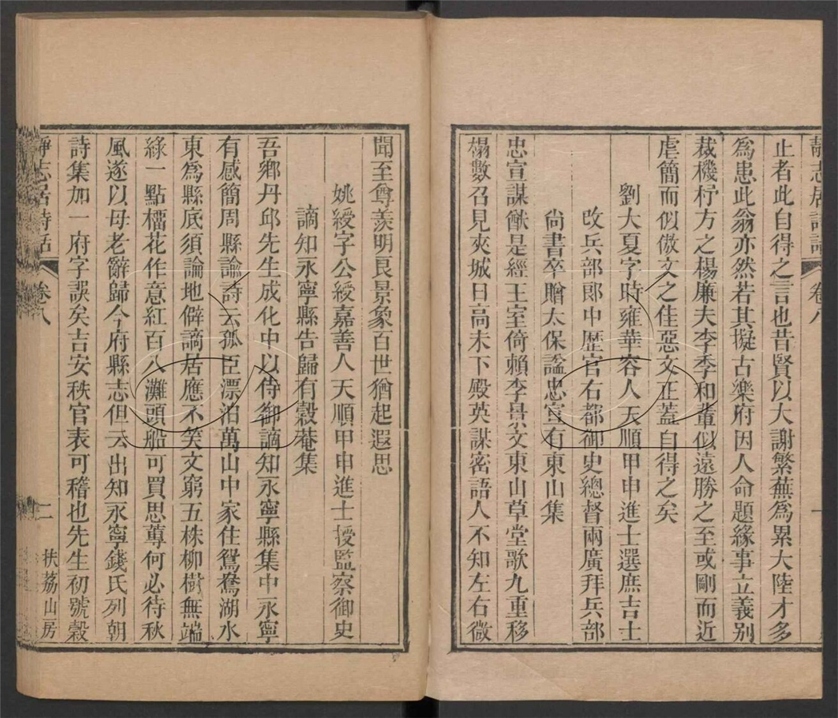 靜志居詩話 卷八
止者此自得之言也昔賢以大謝繁蕪為累大陸才多
為患此翁亦然若其擬古樂府因人命題緣事立義別
裁機杼方之楊廉夫李季和輩似遠勝之至或剛而近
虐簡而似傲文之佳惡文正蓋自得之矣
劉大夏字時雍華容人天順甲申進士選庶吉士
改兵部郎中歷官右都御史總督兩廣拜兵部
尚書卒贈太保諡忠宣有東山集
忠宣謀猷是經王室倚賴李景文東山草堂歌九重移
榻數召見夾城日高未下殿英謀密語人不知左右微
聞至尊羨明良景象百世猶起遐思
姚綬字公綬嘉善人天順甲申進士授監察御史
謫知永寧縣告歸有穀菴集
吾鄉丹邱先生成化中以侍御謫知永寧縣集中永寧
有感簡周縣諭詩云孤臣漂泊萬山中家住鴛鴦湖水
東為縣底須論地僻謫居應不笑文窮五株柳樹無端
綠一點橊花作意紅百八灘頭船可買思蓴何必待秋
風遂以母老辭歸今府縣志但云出知永寧錢氏列朝
詩集加一府字誤矣吉安秩官表可稽也先生初號穀
靜志居詩話 卷八 二 扶荔山房